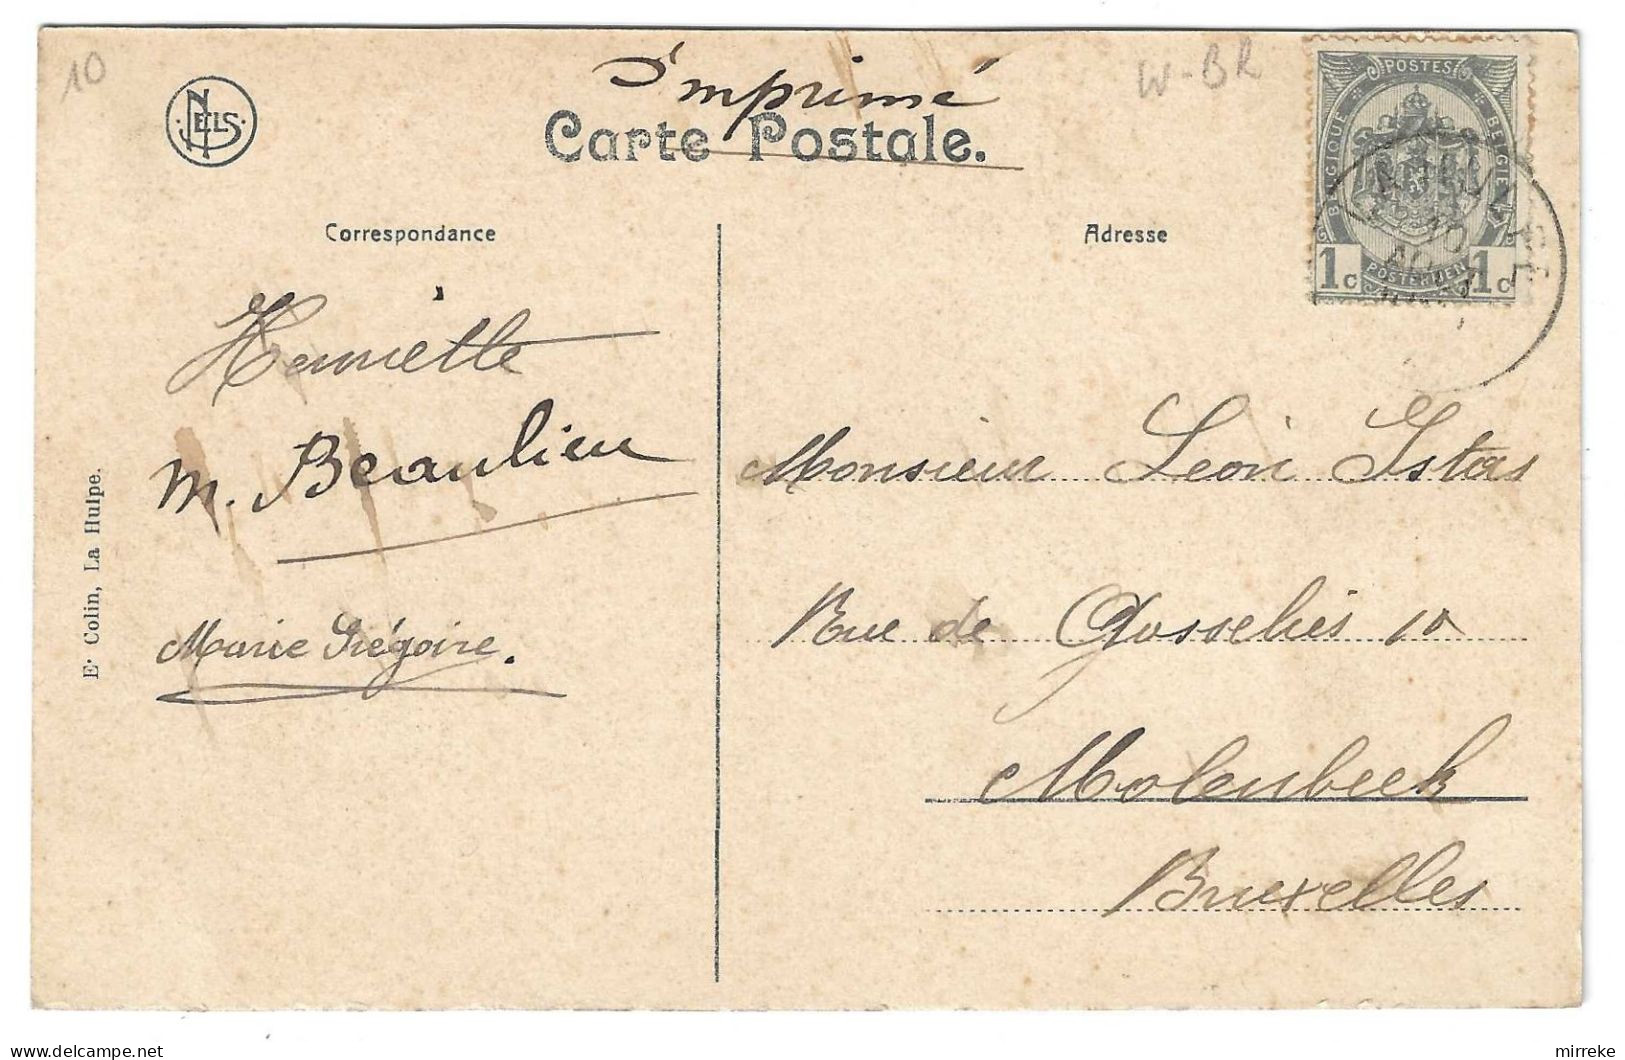 10
NELS
Imprimé
W-BR
Carte Postale.
POSTES
BELGIQUE
BELGIË
POSTERIJEN
1c
1c
Correspondance
Adresse
Henriette
M. Beaulieu
Marie Grégoire.
Monsieur Léon Istas
Rue de Gosselies 10
Molenbeek
Bruxelles
E. Colin, La Hulpe.
delcampe.net
mirreke